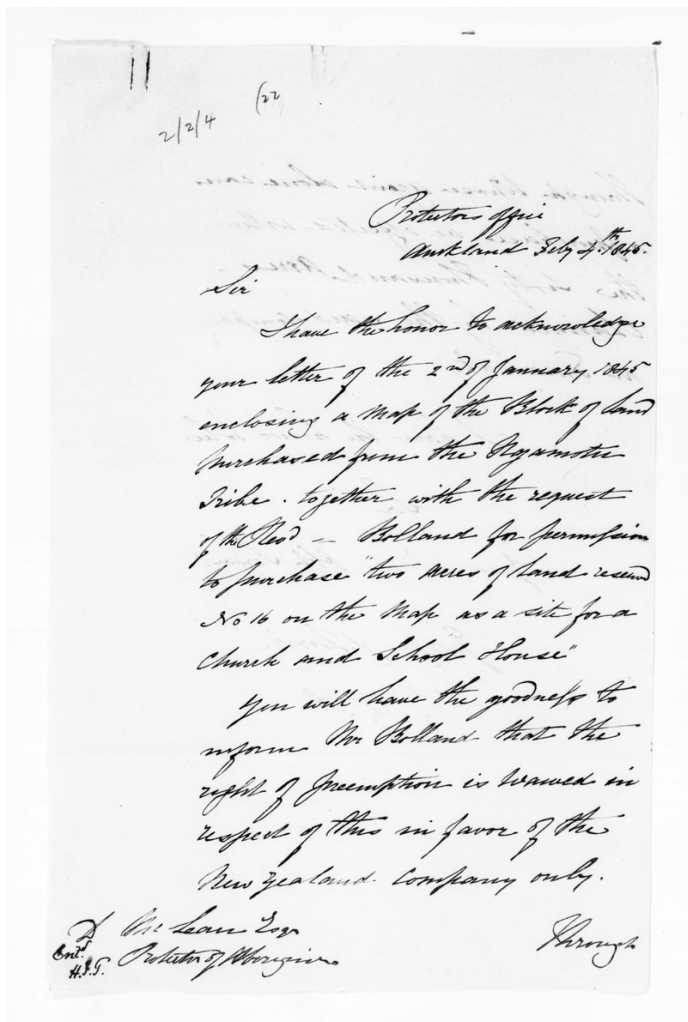 2/2/4
(22
Protectors office
Auckland Feby 4th 1845.
Sir
I have the honor to acknowledge
your letter of the 2nd of January 1845
enclosing a Map of the Block of land
purchased from the Ngamotu
Tribe. together with the request
of the Revd — Bolland for permission
to purchase "two acres of land reserve
No 16 on the Map as a site for a
Church and School House"
You will have the goodness to
inform Mr Bolland that the
right of preemption is waived in
respect of this in favor of the
New Zealand Company only.
D McLean Esqr
Protector of Aborigines
Entd
H.J.G.
Through